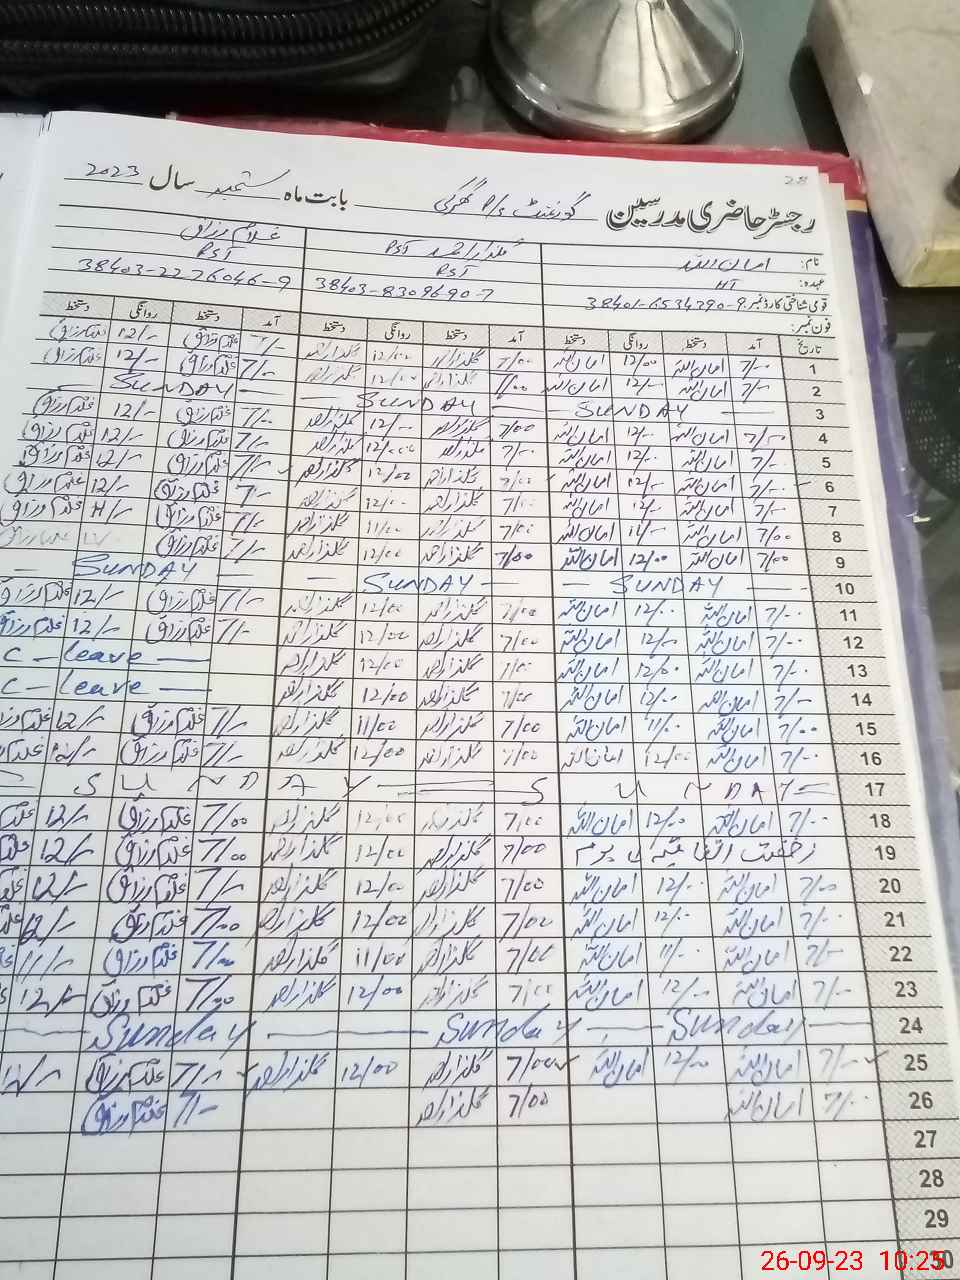 28
رجسٹر حاضری مدرسین گورنمنٹ P/S گھرکی بابت ماہ ستمبر سال 2023
نام: امان اللہ گلزار احمد PST غلام رزاق
عہدہ: HT PST PST
قومی شناختی کارڈ نمبر 38401-6534390-9 38403-8309690-7 38403-2276046-9
فون نمبر:
تاریخ آمد دستخط روانگی دستخط آمد دستخط روانگی دستخط آمد دستخط روانگی دستخط
1 7/-- امان اللہ 12/00 امان اللہ 7/00 گلزار احمد 12/00 گلزار احمد 7/-- غلام رزاق 12/-- غلام رزاق
2 7/-- امان اللہ 12/-- امان اللہ 7/00 گلزار احمد 12/00 گلزار احمد 7/-- غلام رزاق 12/-- غلام رزاق
3 SUNDAY SUNDAY SUNDAY
4 7/-- امان اللہ 12/-- امان اللہ 7/00 گلزار احمد 12/-- گلزار احمد 7/-- غلام رزاق 12/-- غلام رزاق
5 7/-- امان اللہ 12/-- امان اللہ 7/-- گلزار احمد گلزار احمد 7/-- غلام رزاق 12/-- غلام رزاق
6 7/-- امان اللہ 12/-- امان اللہ 7/00 گلزار احمد 12/00 گلزار احمد 7/-- غلام رزاق 12/-- غلام رزاق
7 7/-- امان اللہ 12/-- امان اللہ 7/00 گلزار احمد 12/00 گلزار احمد 7/-- غلام رزاق 12/-- غلام رزاق
8 7/00 امان اللہ 11/-- امان اللہ 7/00 گلزار احمد 11/00 گلزار احمد 7/-- غلام رزاق 11/-- غلام رزاق
9 7/00 امان اللہ 12/00 امان اللہ 7/00 گلزار احمد 12/00 گلزار احمد 7/-- غلام رزاق غلام رزاق
10 SUNDAY SUNDAY SUNDAY
11 7/-- امان اللہ 12/-- امان اللہ 7/00 گلزار احمد 12/00 گلزار احمد 7/-- غلام رزاق 12/-- غلام رزاق
12 7/-- امان اللہ 12/-- امان اللہ 7/00 گلزار احمد 12/00 گلزار احمد 7/-- غلام رزاق 12/-- غلام رزاق
13 7/-- امان اللہ 12/00 امان اللہ 7/00 گلزار احمد 12/00 گلزار احمد C - Leave
14 7/-- امان اللہ 12/-- امان اللہ 7/00 گلزار احمد 12/00 گلزار احمد C - Leave
15 7/00 امان اللہ 11/-- امان اللہ 7/00 گلزار احمد 11/00 گلزار احمد 7/-- غلام رزاق 12/-- غلام رزاق
16 7/-- امان اللہ 12/00 امان اللہ 7/00 گلزار احمد 12/00 گلزار احمد 7/-- غلام رزاق 12/-- غلام رزاق
17 SUNDAY SUNDAY
18 7/-- امان اللہ 12/00 امان اللہ 7/00 گلزار احمد 12/00 گلزار احمد 7/00 غلام رزاق 12/-- غلام
19 رخصت اتفاقیہ یوم 7/00 گلزار احمد 12/00 گلزار احمد 7/00 غلام رزاق 12/-- غلام
20 7/00 امان اللہ 12/-- امان اللہ 7/00 گلزار احمد 12/00 گلزار احمد 7/-- غلام رزاق 12/--
21 7/-- امان اللہ 12/-- امان اللہ 7/00 گلزار احمد 12/00 گلزار احمد 7/00 غلام رزاق 12/--
22 7/-- امان اللہ 11/-- امان اللہ 7/00 گلزار احمد 11/00 گلزار احمد 7/00 غلام رزاق 11/--
23 7/-- امان اللہ 12/-- امان اللہ 7/00 گلزار احمد 12/00 گلزار احمد 7/00 غلام رزاق 12/--
24 Sunday Sunday Sunday
25 7/-- امان اللہ 12/00 امان اللہ 7/00 گلزار احمد 12/00 گلزار احمد 7/-- غلام رزاق 12/--
26 7/00 امان اللہ 7/00 گلزار احمد 7/-- غلام رزاق
27
28
29
30
26-09-23 10:25